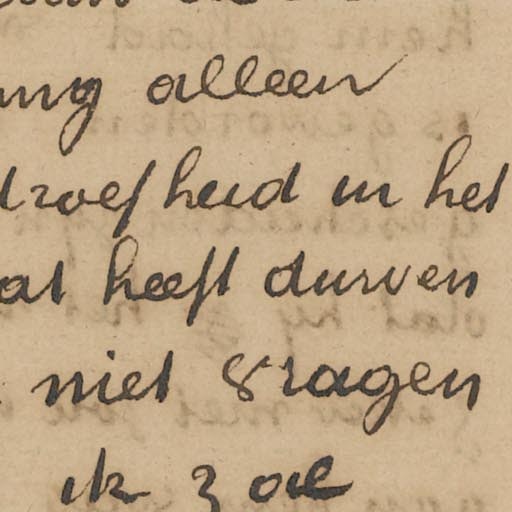 alleen
droefheid in het
heeft durven
niet vragen
ik zal